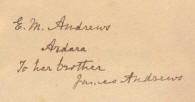 E. M. Andrews
Ardara
To her brother
James Andrews